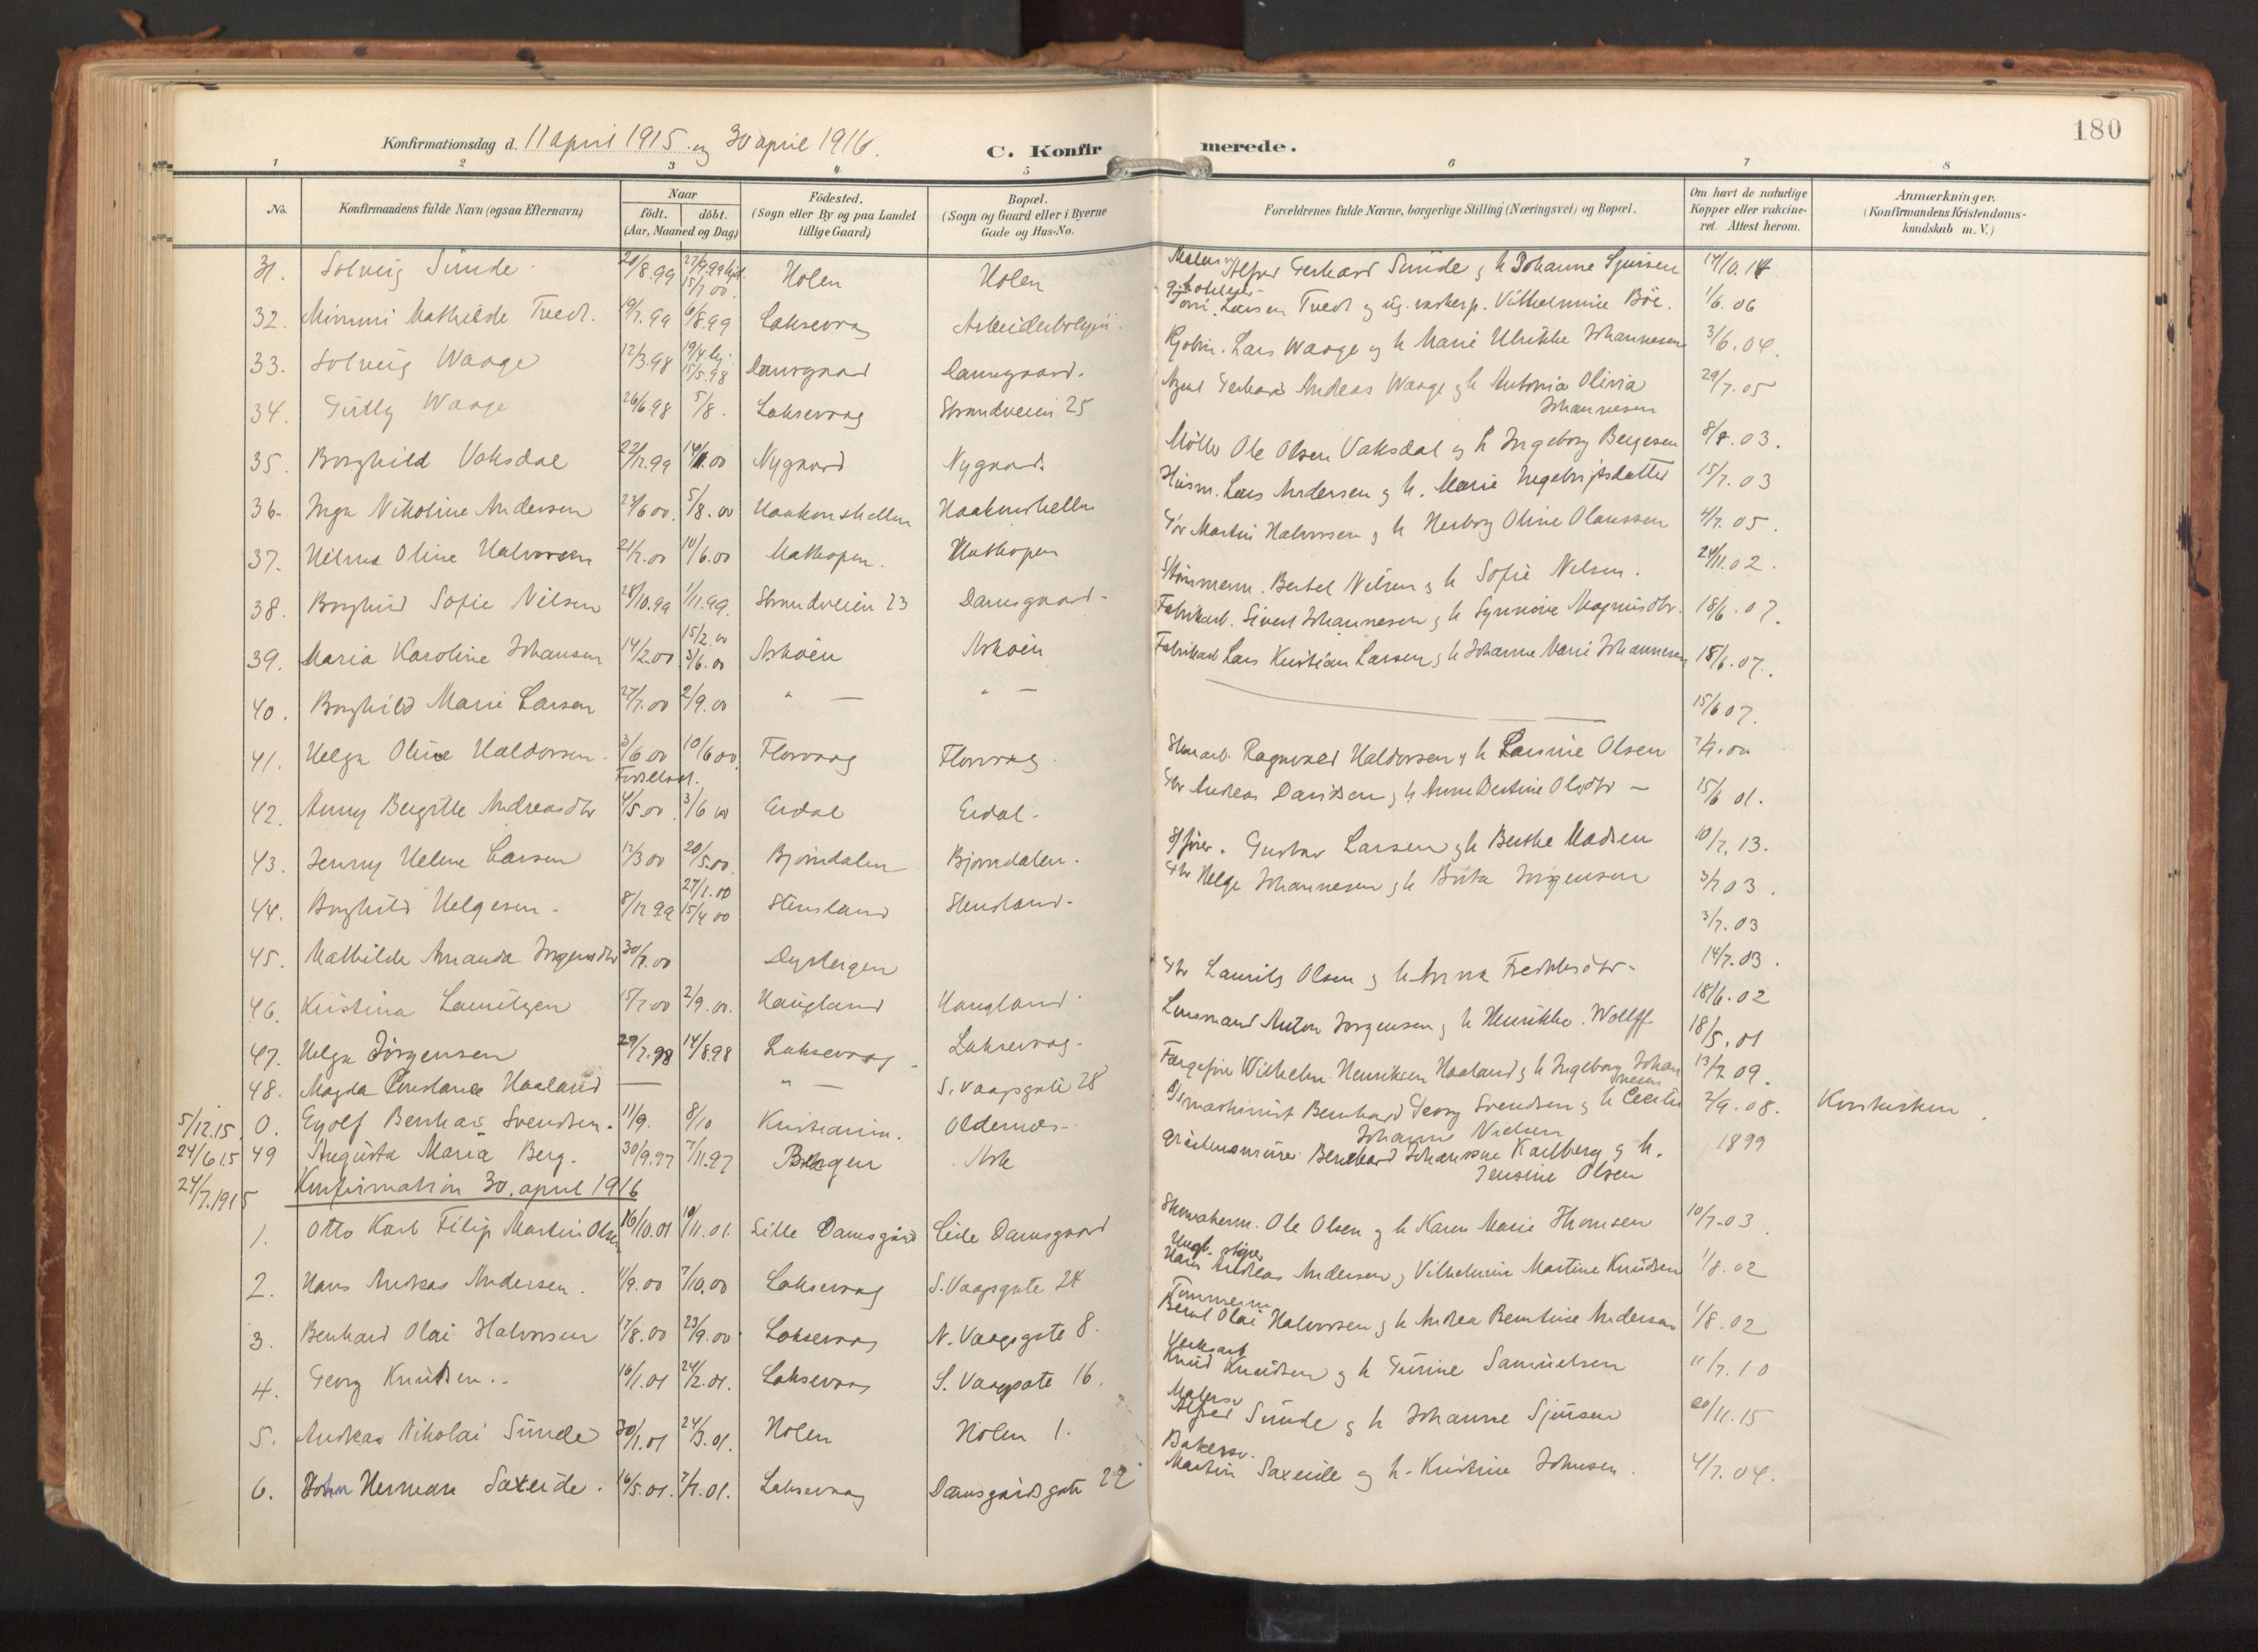 180
Konfirmationsdag d. 11 april 1915 og 30 april 1916.
C. Konfirmerede.
1 2 3 4 5 6 7 8
No.
Konfirmandens fulde Navn (ogsaa Efternavn)
Naar
födt. döbt.
(Aar, Maaned og Dag)
Födested.
(Sogn eller By og paa Landet
tillige Gaard)
Bopæl.
(Sogn og Gaard eller i Byerne
Gade og Hus-No.
Forældrenes fulde Navne, borgerlige Stilling (Næringsvei) og Bopæl.
Om havt de naturlige
Kopper eller vakcine-
ret. Attest herom.
Anmærkninger.
(Konfirmandens Kristendoms-
kundskab m. V.)
31. Solveig Sunde 20/8.99 27/9.99 15/7 00. Holen Holen Alfred Gerhard Sunde og h Johanne Sjursen 14/10.14
32. Mimmi Mathilde Tvedt. 19/7.99 6/8.99 Laksevaag Larsen Tvedt og Vilhelmine Böe. 1/6. 06
33. Solveig Waage 12/3.98 15/5.98 Damsgaard Damsgaard. Kjøbm. Lars Waage og h Marie Ulrikke Johannesen 3/6.04.
34. Waage 26/6 98 5/8. Laksevaag Strandveien 25 Agent Gerhard Andreas Waage og h Antonia Olivia 29/7.05
Johannesen
35. Borghild Vaksdal 22/12.99 Nygaard Nygaard. Möller Ole Olsen Vaksdal og h Ingeborg Bergesen 8/8.03.
36. Inga Nikoline Andersen 23/6 00. 5/8.00 Haakonshellen Haakonshellen Husm. Lars Andersen og h. Marie Ingebrigtsdatter 15/7.03
37. Hilma Oline Halvorsen 21/2.00 10/6.00 Mathopen. Mathopen Gbr Martin Halvorsen og h Herborg Oline Olaussen 4/7.05.
38. Borghild Sofie Nilsen 28/10.99 1/11.99. Strandveien 23 Damsgaard Bertel Nilsen og h Sofie Nilsen. 24/11.02.
39. Maria Karoline Johansen 14/2.00 15/2.00 3/6.00 Askøen Askøen Fabrikarb. Sivert Johannesen og h Synnøve Magnusdtr. 18/6.07.
40. Borghild Marie Larsen 27/7.00 2/9.00 " — " — Fabrikarb Lars Kristian Larsen og h Johanne Marie Johannesen 18/6.07.
15/6 07.
41. Helga Oline Haldorsen. 3/6 00 10/6 00 Florvaag Florvaag. Ragnvald Haldorsen og h Larsine Olsen
42. Anny Bergitte Andreasdtr 4/5.00. 3/6 00 Erdal Erdal. Gbr Andreas Davidsen og h Anne Bertine Olsdtr — 15/6 01.
43. Jenny Helene Larsen 12/3 00 20/5.00. Bjorndalen Bjorndalen. Gustav Larsen og h Berthe Madsen 10/7. 13.
44. Borghild Helgesen. 8/12 99 27/1.00 15/4 00 Stensland Stensland. Gbr Helge Johannesen og h Brita Jörgensen 3/7 03.
3/7.03
45. Mathilde Amanda Jörgensdtr 30/7.00 Dyrbergen 14/7.03.
46. Kristina Lauritzen 15/7 00 2/9.00. Haugland Haugland. Gbr Laurits Olsen og h Anna Fredriksdtr. 18/6.02
47. Helga Jörgensen 29/7.98 14/8.98 Laksevaag Laksevaag. Lensmand Anton Jorgensen og h Henrikke Wolff 18/5.01
48. Magda Constance Haaland — " — S. Vaagsgate 28 Færgefører Wilhelm Henriksen Haaland og h Ingeborg Johannesen 13/7 09.
5/12.15. O. Eyolf Bernhard Svendsen. 11/9. 8/10 Kristiania. Oldernæs. maskinist Bernhard Georg Svendsen og h Cecilie 2/9.08. Korskirken.
Johanne Nielsen
24/6 15 49 Augusta Maria Berg. 30/9.97 7/11.97 Bergen Ask Bernhard Johansen Karlberg og h. 1899
Jensine Olsen
24/7.1915 Konfirmation 30. april 1916
1. Otto Karl Filip Martin Olsen 16/10.01 10/11.01. Lille Damsgård Lille Damsgaard Ole Olsen og h Karen Marie Thomsen 10/7-03
2. Hans Andreas Andersen. 1/9.00 7/10.00 Laksevaag S. Vaagsgate 24 Hans Andreas Andersen og Vilhelmine Martine Knudsen 1/8.02
3. Bernhard Olai Halvorsen 17/8.00 23/9.00 Laksevaag N. Vaagsgate 8. Tømmerm Bernt Olai Halvorsen og h Andrea Berntine Andersen 1/8.02
4. Georg Knudsen. 16/1.01 24/2.01. Laksevaag S. Vaagsgate 16. Verksarb Knud Knudsen og h Turine Samuelsen 11/7.10
5. Andreas Nikolai Sunde 30/1.01 24/3.01. Holen Holen 1. Malersv Alfred Sunde og h Johanne Sjursen 20/11.15
6. John Herman Saxeide. 16/5.01. 7/7.01. Laksevaag Damsgårdsgate 22 Bakersv. Martin Saxeide og h. Kristine Johnsen. 4/7.04.